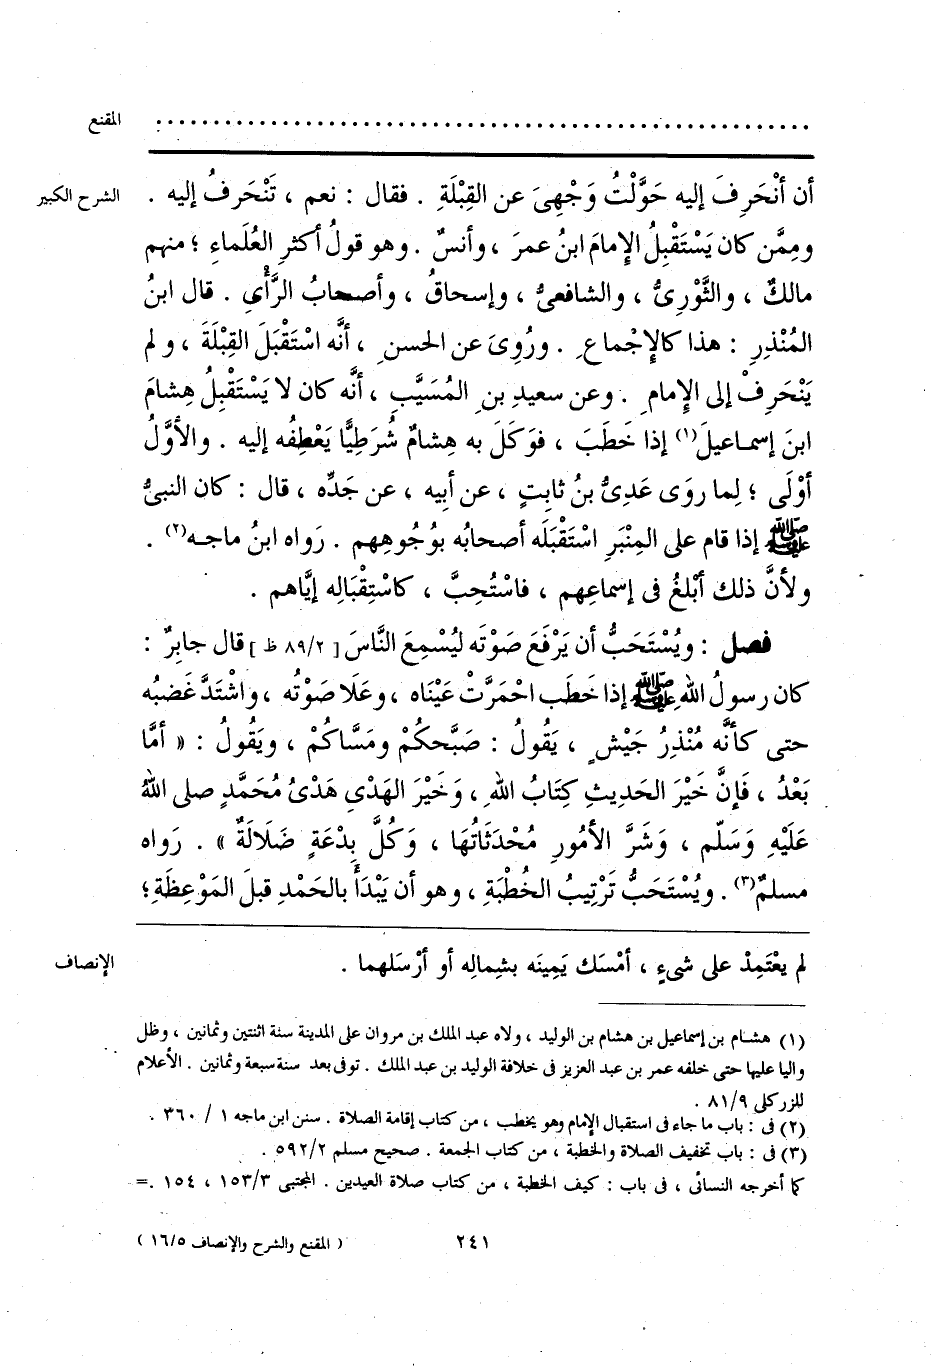 المقنع . . . . . . . . . . . . . . . . . . . . . . . . . . . . . . . . . . . . . . . . . . . . . . . . . . . . . . . . .
الشرح الكبير
أن أنْحَرِفَ إليه حَوَّلْتُ وَجْهِىَ عن القِبْلَةِ . فقال : نعم ، تَنْحَرِفُ إليه .
ومِمَّن كان يَسْتَقْبِلُ الإِمامَ ابنُ عمرَ ، وأنسٌ . وهو قولُ أكثرِ العُلَماءِ ؛ منهم
مالكٌ ، والثَّوْرِىُّ ، والشافعىُّ ، وإسحاقُ ، وأصحابُ الرَّأْىِ . قال ابنُ
المُنْذِرِ : هذا كالإِجْماعِ . ورُوِىَ عن الحسنِ ، أنَّه اسْتَقْبَلَ القِبْلَةَ ، و لم
يَنْحَرِفْ إلى الإِمامِ . وعن سعيدِ بنِ المُسَيَّبِ ، أنَّه كان لا يَسْتَقْبِلُ هِشامَ
ابنَ إسماعيلَ(١) إذا خَطَبَ ، فوَكَلَ به هِشامٌ شُرَطِيًّا يَعْطِفُه إليه . والأوَّلُ
أوْلَى ؛ لِما روَى عَدِىُّ بنُ ثابتٍ ، عن أبيه ، عن جَدِّه ، قال : كان النبىُّ
ﷺ إذا قام على المِنْبَرِ اسْتَقْبَلَه أصحابُه بوُجُوهِهم . رَواه ابنُ ماجه(٢) .
ولأنَّ ذلك أبْلَغُ فى إسماعِهم ، فاسْتُحِبَّ ، كاسْتِقْبَالِه إيَّاهم .
فصل : ويُسْتَحَبُّ أن يَرْفَعَ صَوْتَه ليُسْمِعَ النَّاسَ [ ٨٩/٢ ظ ] قال جابرٌ :
كان رسولُ اللهِ ﷺ إذا خَطَب احْمَرَّتْ عَيْناه ، وعَلَا صَوْتُه ، واشْتَدَّ غَضبُه
حتى كأنَّه مُنْذِرُ جَيْشٍ ، يَقُولُ : صَبَّحكُمْ ومَسَّاكُمْ ، ويَقُولُ : « أمَّا
بَعْدُ ، فَإنَّ خَيْرَ الحَدِيثِ كِتَابُ اللهِ ، وَخَيْرَ الهَدْىِ هَدْىُ مُحَمَّدٍ صلى اللهُ
عَلَيْهِ وَسَلّم ، وَشَرَّ الأمُورِ مُحْدَثَاتُهَا ، وَكُلَّ بِدْعَةٍ ضَلَالَةٌ » . رَواه
مسلمٌ(٣) . ويُسْتَحَبُّ تَرْتِيبُ الخُطْبَةِ ، وهو أن يَبْدَأَ بالحَمْدِ قبلَ المَوْعِظَةِ ؛
الإنصاف
لم يعْتَمِدْ على شىءٍ ، أمْسَك يَمِينَه بشمالِه أو أرْسَلهما .
(١) هشام بن إسماعيل بن هشام بن الوليد ، ولاه عبد الملك بن مروان على المدينة سنة اثنتين وثمانين ، وظل
واليا عليها حتى خلفه عمر بن عبد العزيز فى خلافة الوليد بن عبد الملك . توفى بعد سنة سبعة وثمانين . الأعلام
للزركلى ٨١/٩ .
(٢) فى : باب ما جاء فى استقبال الإمام وهو يخطب ، من كتاب إقامة الصلاة . سنن ابن ماجه ١ / ٣٦٠ .
(٣) فى : باب تخفيف الصلاة والخطبة ، من كتاب الجمعة . صحيح مسلم ٥٩٢/٢ .
كما أخرجه النسائى ، فى باب : كيف الخطبة ، من كتاب صلاة العيدين . المجتبى ١٥٣/٣ ، ١٥٤ .=
٢٤١
( المقنع والشرح والإنصاف ١٦/٥ )